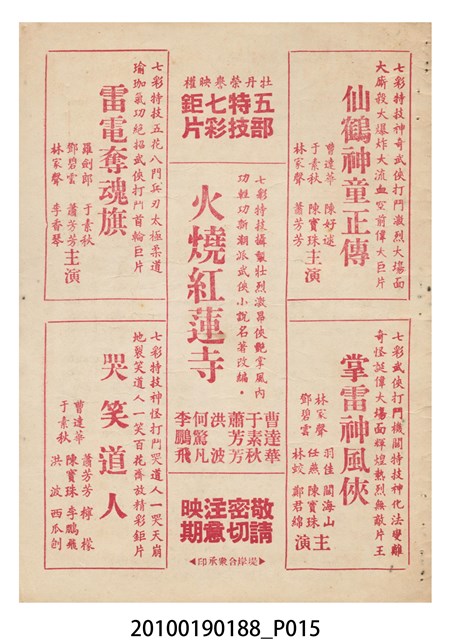 牡丹榮譽映權
五部
特技
七彩
鉅片
七彩特技神奇武俠打鬥激烈大場面
大廝殺大爆炸大流血空前偉大巨片
仙鶴神童正傳
曹達華 陳好逑
于素秋 陳寶珠 主演
林家聲 蕭芳芳
七彩武俠打鬥機關特技神化法變離
奇怪誕偉大場面輝煌熱烈無敵片王
掌雷神風俠
林家聲 羽佳 關海山
鄧碧雲 任燕 陳寶珠 主演
林蛟 鄭君綿
七彩特技攝製壯烈激昂俠艷掌風內
功輕功新潮派武俠小說名著改編。
火燒紅蓮寺
曹達華
于素秋
蕭芳芳
洪波
何驚凡
李鵬飛
敬請
密切
注意
映期
◀堤岸合眾承印▶
七彩特技五花八門兵刃太極柔道
瑜珈氣功絕招武俠打鬥首輪巨片
雷電奪魂旗
羅劍郎 于素秋
鄧碧雲 蕭芳芳 主演
林家聲 李香琴
七彩特技神怪打鬥哭道人一哭天崩
地裂笑道人一笑百花齊放精彩鉅片
哭笑道人
曹達華 蕭芳芳 檸檬
于素秋 陳寶珠 李鵬飛
洪波 西瓜刨
20100190188_P015